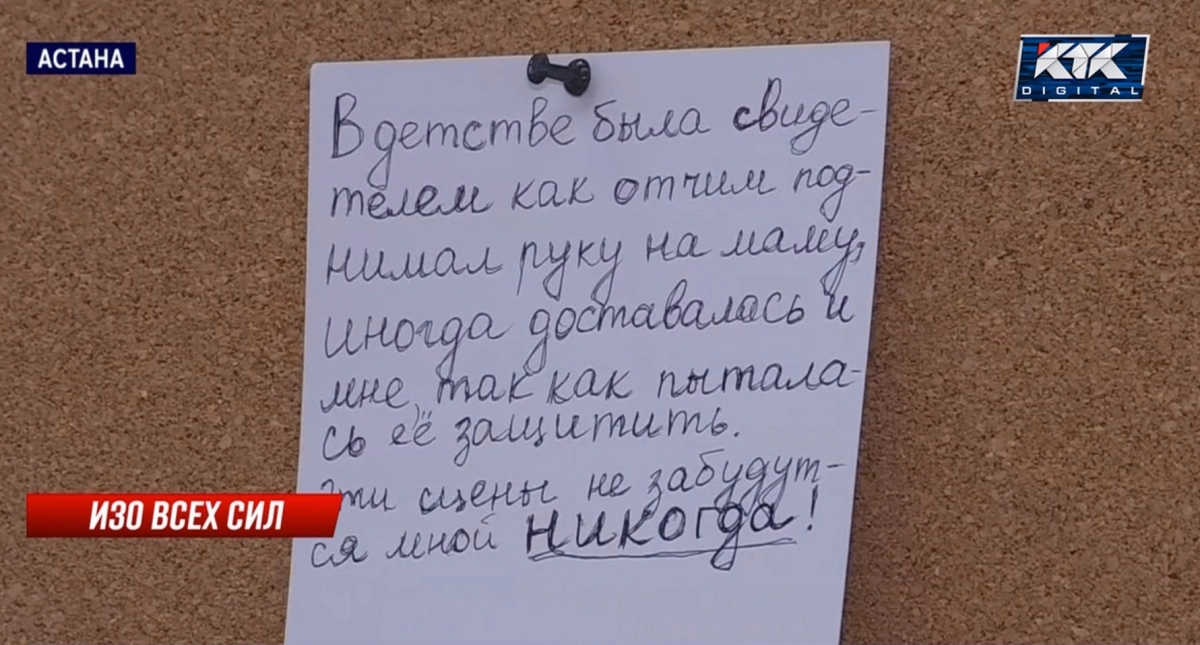 АСТАНА
КТК
DIGITAL
В детстве была свиде-
телем как отчим под-
нимал руку на маму,
иногда доставалась и
мне, так как пытала-
сь её защитить.
эти сцены не забудут-
ся мной НИКОГДА!
ИЗО ВСЕХ СИЛ